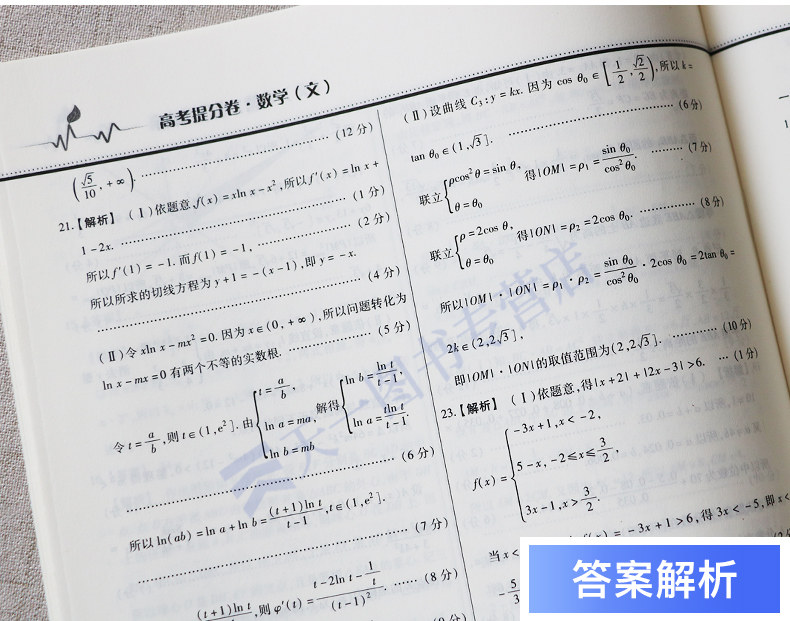 高考提分卷·数学(文)
(√5/10, +∞). (12分)
21.【解析】 (Ⅰ)依题意,f(x)=xln x-x²,所以f′(x)=ln x+
1-2x. (1分)
所以f′(1)=-1.而f(1)=-1, (2分)
所以所求的切线方程为y+1=-(x-1),即y=-x.
(4分)
(Ⅱ)令xln x-mx²=0.因为x∈(0,+∞),所以问题转化为
ln x-mx=0有两个不等的实数根. (5分)
令t=a/b,则t∈(1,e²].由{t=a/b, ln a=ma, ln b=mb 解得{ln b=ln t/(t-1), ln a=tln t/(t-1).
(6分)
所以ln(ab)=ln a+ln b=(t+1)ln t/(t-1),t∈(1,e²].
(7分)
(t+1)ln t ,则φ′(t)=(t-2ln t-1/t)/(t-1)². (8分)
(Ⅱ)设曲线C₃:y=kx.因为cos θ₀∈[1/2,√2/2),所以k=
tan θ₀∈(1,√3]. (6分)
联立{ρcos²θ=sin θ, θ=θ₀ 得|OM|=ρ₁=sin θ₀/cos²θ₀. (7分)
联立{ρ=2cos θ, θ=θ₀ 得|ON|=ρ₂=2cos θ₀. (8分)
所以|OM|·|ON|=ρ₁·ρ₂=sin θ₀/cos²θ₀·2cos θ₀=2tan θ₀=
2k∈(2,2√3],
即|OM|·|ON|的取值范围为(2,2√3]. (10分)
23.【解析】 (Ⅰ)依题意,得|x+2|+|2x-3|>6. (1分)
f(x)={-3x+1,x<-2, 5-x,-2≤x≤3/2, 3x-1,x>3/2.
当x< f(x)=-3x+1>6,得3x<-5,即x<
-5/3
答案解析